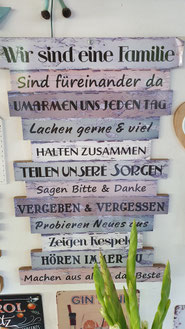 Wir sind eine Familie
Sind füreinander da
UMARMEN UNS JEDEN TAG
Lachen gerne & viel
HALTEN ZUSAMMEN
TEILEN UNSERE SORGEN
Sagen Bitte & Danke
VERGEBEN & VERGESSEN
Probieren Neues aus
Zeigen Respekt
HÖREN IMMER ZU
Machen aus das Beste
GIN